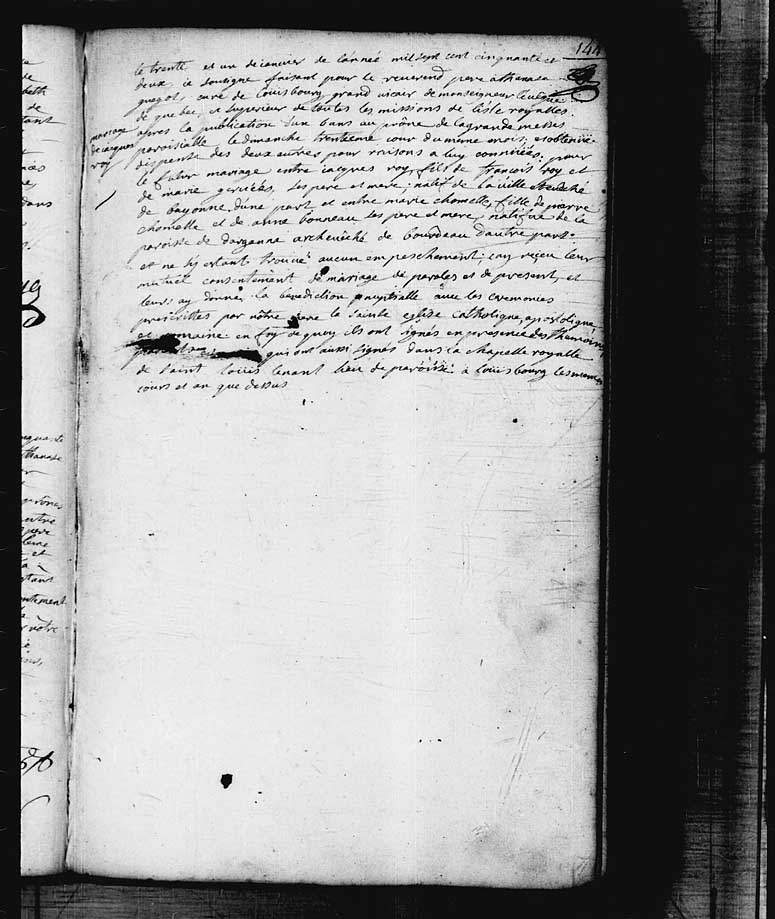 144
le trente et un de janvier de l'année mil sept cent cinquante et
deux, je soussigne faisant pour le reverend pere athanase
guegot, curé de louisbourg grand vicair de monseigneur l'eveque
de quebec, et superieur de toutes les missions de l'isle royalle.
apres la publication d'un bans au prône de la grande messes
mariage
de jacques
roy
paroissialle le dimanche trentieme jour du meme mois, et obtenüe
dispense des deux autres pour raisons a luy connües. pour
le futur mariage entre jacques roy, fils de francois roy et
de marie, ses pere et mere, natif de la ville eveché
de bayonne, d'une part et entre marie chomelle, fille de pierre
chomelle et de anne bonneau ses pere et mere, natifue de la
paroisse de archevêché de bourdeau d'autre part.
et ne s'y estant trouvé aucun empeschement, j'ay reçeu leur
mutuel consentement de mariage de paroles et de present, et
leurs ay donnez la benediction nuptialle avec les ceremonies
prescrittes par nôtre mere la sainte eglise catholique, apostolique
et romaine en foy de quoy ils ont signés en presence des themoins
qui ont aussi signés dans la chapelle royalle
de saint louis tenant lieu de paroisse à louisbourg les memes
jours et an que dessus